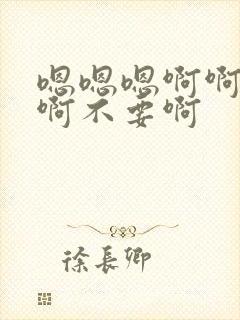 嗯嗯嗯啊啊
啊不要啊
徐长卿